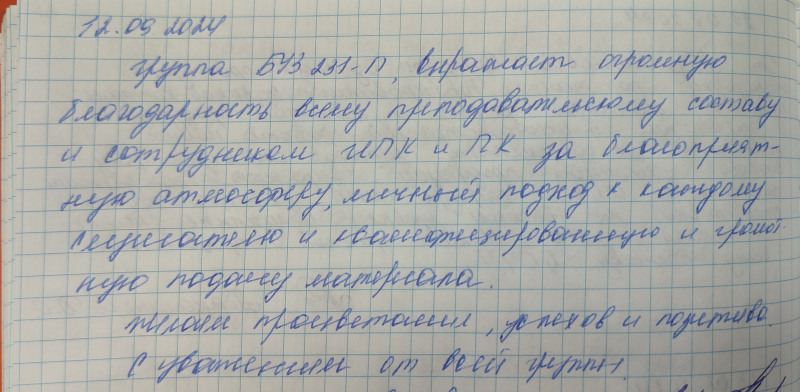 12.09 2024
группа БУЗ 231-П, выражает огромную
благодарность всему преподавательскому составу
и сотрудникам ИПК и ПК за благоприят-
ную атмосферу, личный подход к каждому
слушателю и квалифицированную и грамот-
ную подачу материала.
Желаем процветания, успехов и позитива.
С уважением от всей группы.